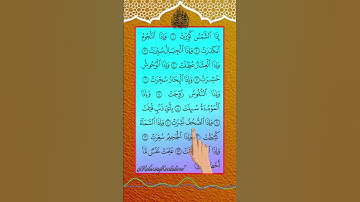 إِذَا الشَّمْسُ كُوِّرَتْ ۝ وَإِذَا النُّجُومُ
انْكَدَرَتْ ۝ وَإِذَا الْجِبَالُ سُيِّرَتْ ۝
وَإِذَا الْعِشَارُ عُطِّلَتْ ۝ وَإِذَا الْوُحُوشُ
حُشِرَتْ ۝ وَإِذَا الْبِحَارُ سُجِّرَتْ ۝
وَإِذَا النُّفُوسُ زُوِّجَتْ ۝ وَإِذَا
الْمَوْءُودَةُ سُئِلَتْ ۝ بِأَيِّ ذَنْبٍ قُتِلَتْ
۝ وَإِذَا الصُّحُفُ نُشِرَتْ ۝ وَإِذَا السَّمَاءُ
كُشِطَتْ ۝ وَإِذَا الْجَحِيمُ سُعِّرَتْ ۝
وَإِذَا ۝ عَلِمَتْ نَفْسٌ مَّا